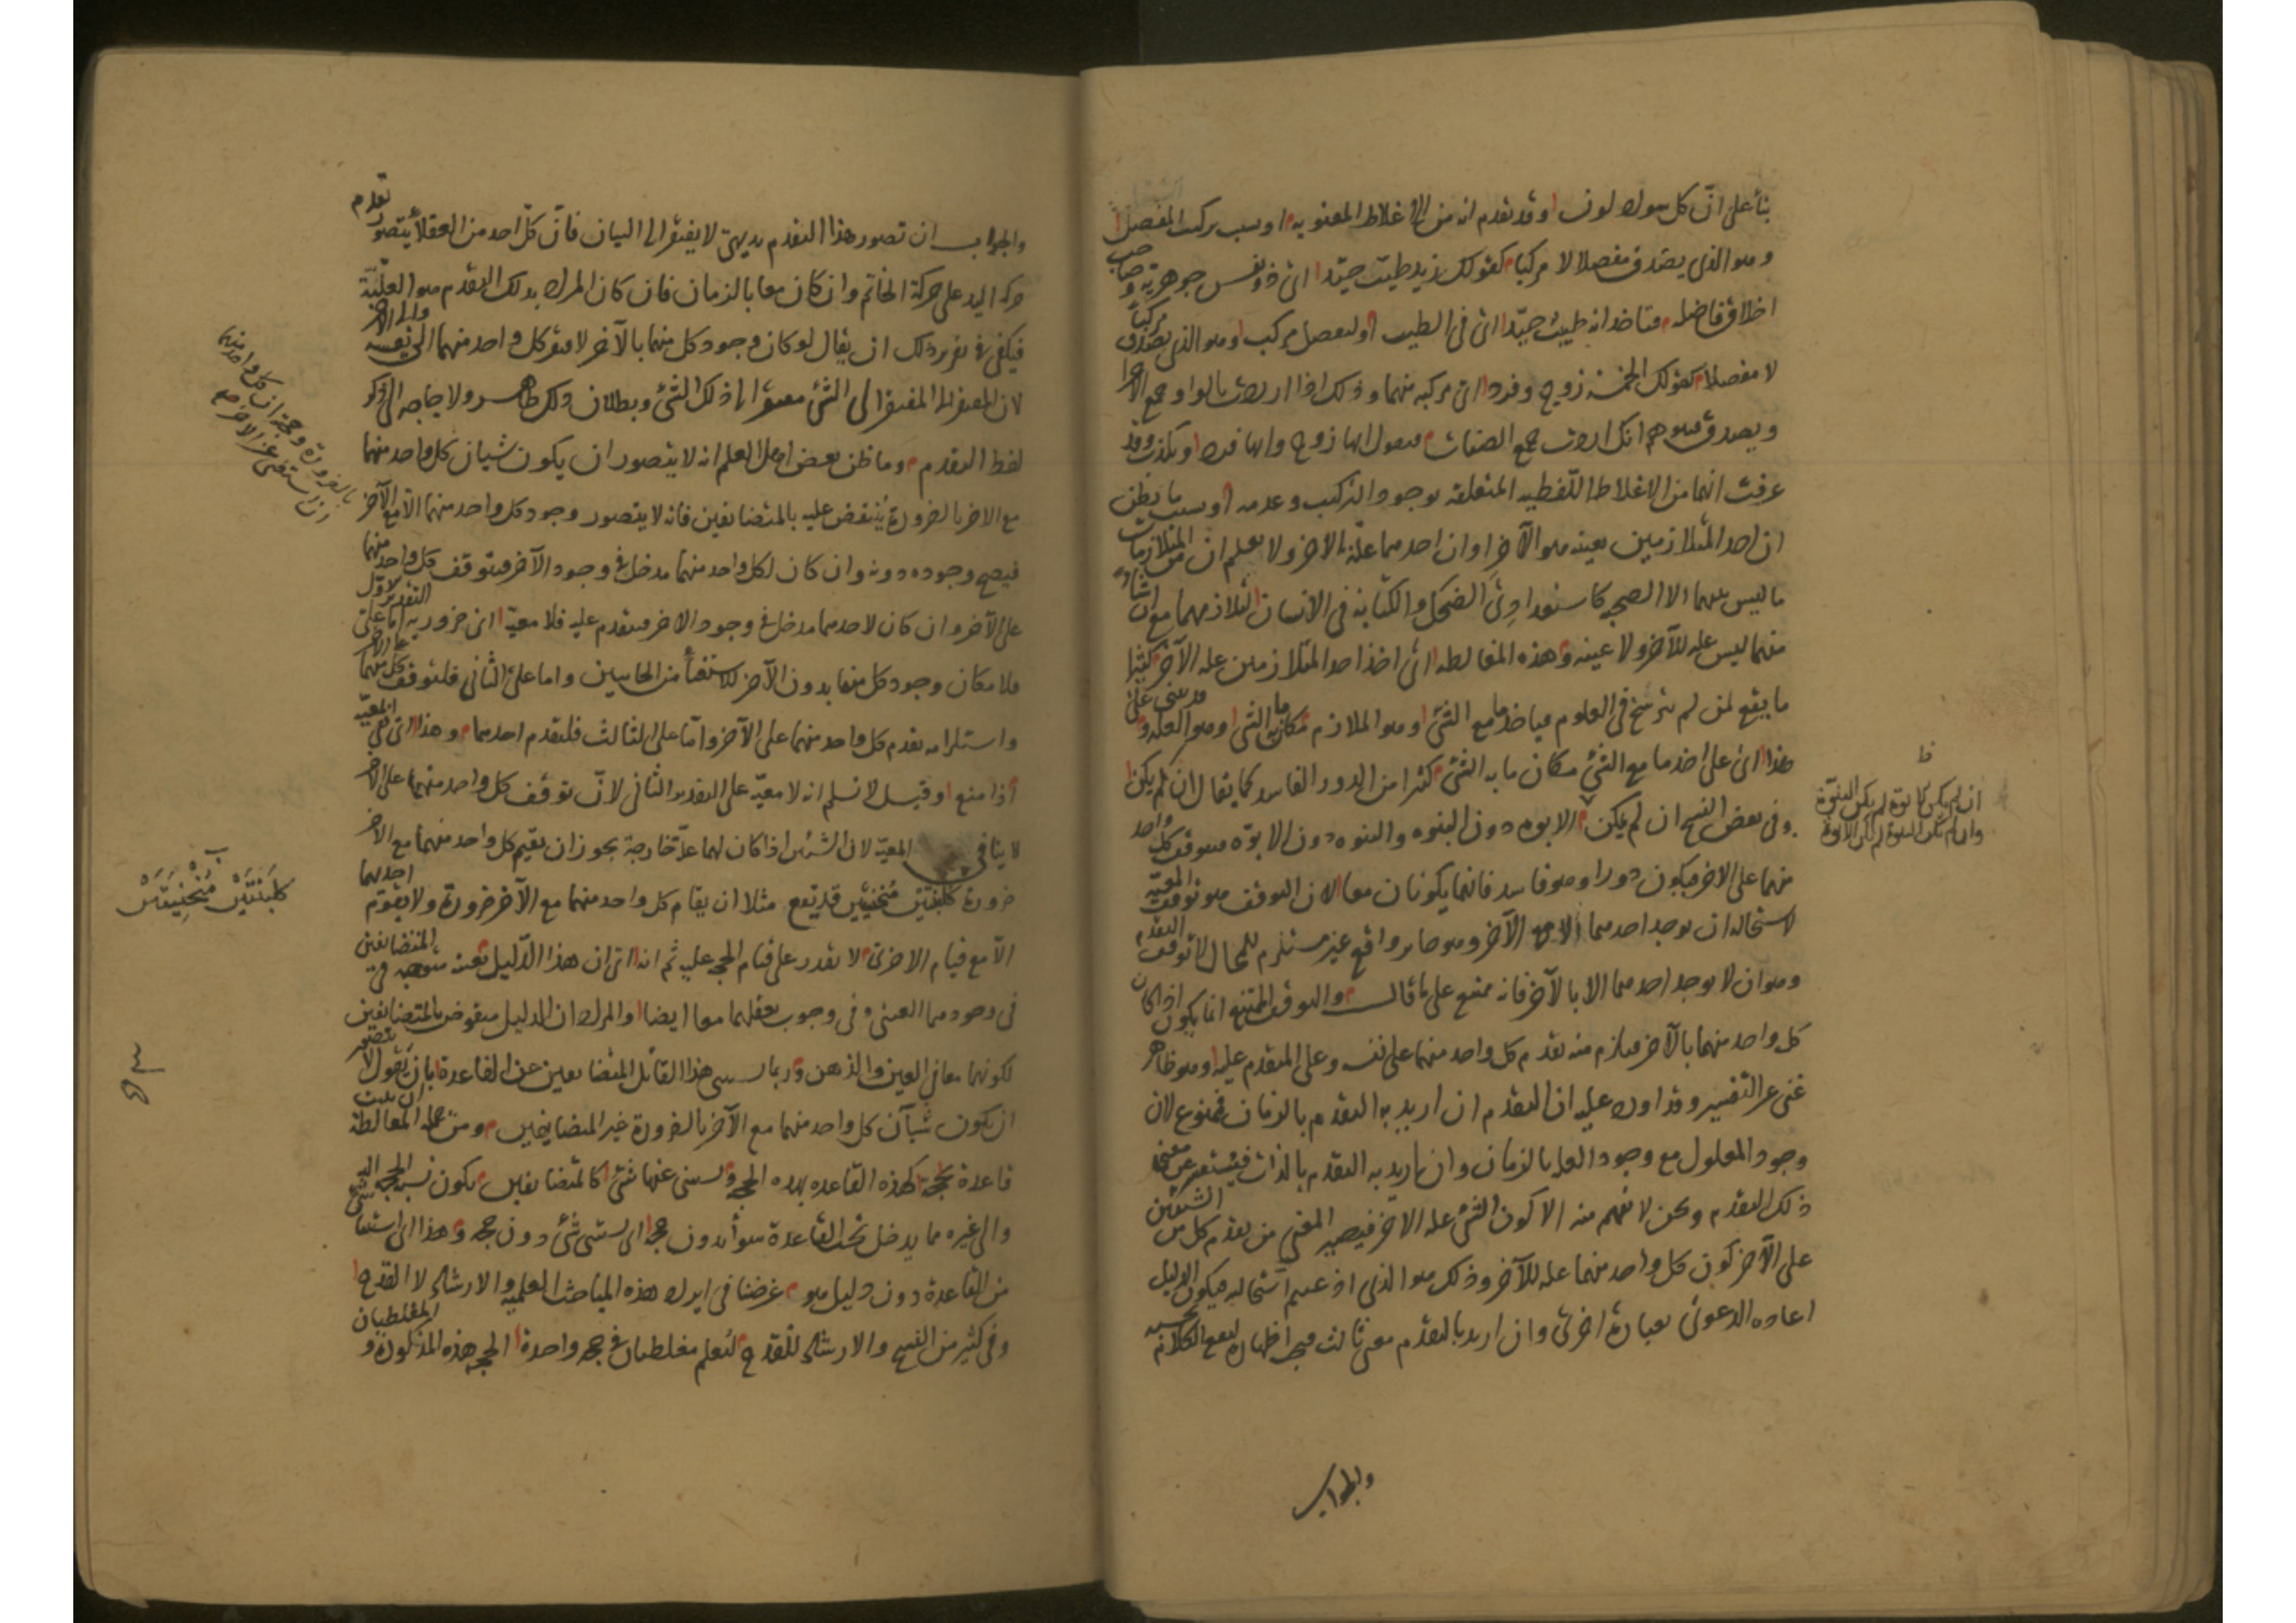 بناء على ان كل سواد لون او قد تقدم انه من الاغلاط المعنوية او بسبب تركيب المفصل
وهو الذى يصدق مفصلا لا مركبا كقولك زيد طبيب جيد اى ذو نفس جوهرية وصاحب
اخلاق فاضله فتاخذ انه طبيب جيد اى فى الطب او لتفصيل مركب وهو الذى يصدق مركبا
لا مفصلا كقولك الخمسة زوج وفرد اى مركبه منهما وذلك اذا اردت بالواو جمع الاجزا
ويصدق فيتوهم انك اردت جمع الصفات فتقول انها زوج وانها فرد وتكذب وقد
عرفت انهما من الاغلاط اللفظيه المتعلقة بوجود التركيب وعدمه او بسبب ما يظن
ان احد المتلازمين بعينه هو الآخر او ان احدهما علة الاخر ولا يعلم ان من المتلازمات
ما ليس بينهما الا الصحبه كاستعدادى الضحك والكتابة فى الانسان لتلازمهما مع ان شيئا
منهما ليس علة للآخر ولا عينه وهذه المغالطه اى اخذ احد المتلازمين علة الآخر كثيرا
ما يقع لمن لم يترسخ فى العلوم فياخذ ما مع الشئ وهو الملازم مكان ما به الشئ وهو العلة وقد يبتنى على
هذا اى على اخذ ما مع الشئ مكان ما به الشئ كثير من الدور الفاسد كما يقال ان لم يكن
وفى بعض النسخ ان لم يكن الابوه دون البنوه والبنوه دون الابوّه فيتوقف كل واحد
منهما على الاخر فيكون دورا وهو فاسد فانهما يكونان معا لان التوقف هو توقف المعية
لاستحالة ان يوجد احدهما الا مع الآخر وهو جائز واقع غير مستلزم للمحال لا توقف التقدم
وهو ان لا يوجد احدهما الا بالآخر فانه ممتنع على ما قال والتوقف الممتنع انما يكون اذا كان
كل واحد منهما بالآخر فيلزم منه تقدم كل واحد منهما على نفسه وعلى المتقدم عليه وهو ظاهر
غنى عن التفسير وقد اورد عليه ان التقدم ان اريد به التقدم بالزمان فممنوع لان
وجود المعلول مع وجود العلة بالزمان وان اريد به التقدم بالذات فيستفسر عن معنى
ذلك التقدم ونحن لا نفهم منه الا كون الشئ علة الاخر فيصير المعنى من تقدم كل من الشيئين
على الآخر كون كل واحد منهما علة للآخر وذلك هو الذى ادعيتم استحالته فيكون الدليل
اعادة الدعوى بعبارة اخرى وان اريد بالتقدم معنى ثالث فيجب اظهاره ليقع الكلام بحسبه
والجواب
ان لم يكن الابوة لم يكن البنوة
وان لم تكن البنوة لم تكن الابوة
والجواب ان تصور هذا التقدم بديهى لا يفتقر الى البيان فان كل احد من العقلاء يتصور تقدم
حركة اليد على حركة الخاتم وان كان معا بالزمان فان كان المراد بذلك التقدم هو العلية
فيكفى فى تقرير ذلك ان يقال لو كان وجود كل منهما بالآخر لافتقر كل واحد منهما الى نفسه والى الآخر
لان المفتقر الى المفتقر الى الشئ مفتقر الى ذلك الشئ وبطلان ذلك ظاهر ولا حاجه الى ذكر
لفظ التقدم وما ظن بعض اهل العلم انه لا يتصور ان يكون شيئان كل واحد منهما
مع الاخر بالضرورة ينتقض عليه بالمتضايفين فانه لا يتصور وجود كل واحد منهما الا مع الآخر
بالضرورة وحجة ان كل واحد منهما
ان استغنى عن الاخر صح
فيصح وجوده دونه وان كان لكل واحد منهما مدخل فى وجود الآخر فيتوقف كل واحد منهما
على الآخر وان كان لاحدهما مدخل فى وجود الاخر فيتقدم عليه فلا معية اى ضرورية اما على التقدير الاول
فلامكان وجود كل منهما بدون الآخر للاستغناء من الجانبين واما على الثانى فلتوقف كل منهما على الآخر
واستلزامه تقدم كل واحد منهما على الآخر واما على الثالث فلتقدم احدهما وهذا اى نفى المعية
اذا منع وقيل لا نسلم انه لا معية على التقدير الثانى لان توقف كل واحد منهما على الاخر
لا ينافى المعية لان الشيئين اذا كان لهما علة خارجة يجوز ان تقيم كل واحد منهما مع الاخر
ضرورة كلبنتين منحنيتين قد يقع مثلا ان يقام كل واحد منهما مع الآخر ضرورة ولا يقوم احدهما
كلبنتين منحنيتين
الا مع قيام الاخرى لا يقدر على قيام الحجه عليه ثم انه اى ان هذا الدليل بعينه متوجه فى المتضايفين
فى وجودهما العينى وفى وجوب تعقلهما معا ايضا والمراد ان الدليل منقوض بالمتضايفين
لكونهما معا فى العين والذهن وربما يستثنى هذا القائل المتضايفين عن القاعدة بان يقول لا يتصور
ان يكون شيآن كل واحد منهما مع الآخر بالضرورة غير المتضايفين ومن جملة المغالطة ان يثبت
قاعدة بحجة كهذه القاعده بهذه الحجه ويستثنى عنها شئ كالمتضايفين يكون نسبة الحجه اليه
والى غيره مما يدخل تحت القاعدة سواء بدون حجة اى يستثنى شئ دون حجه وهذا اى استثناء شئ
من القاعدة دون دليل هو غرضنا فى ايراد هذه المباحث العلمية والارشاد لا القدح
وفى كثير من النسخ والارشاد للقدح لتعلم مغلطتان فى حجه واحدة الحجه هذه المذكورة والمغلطتان